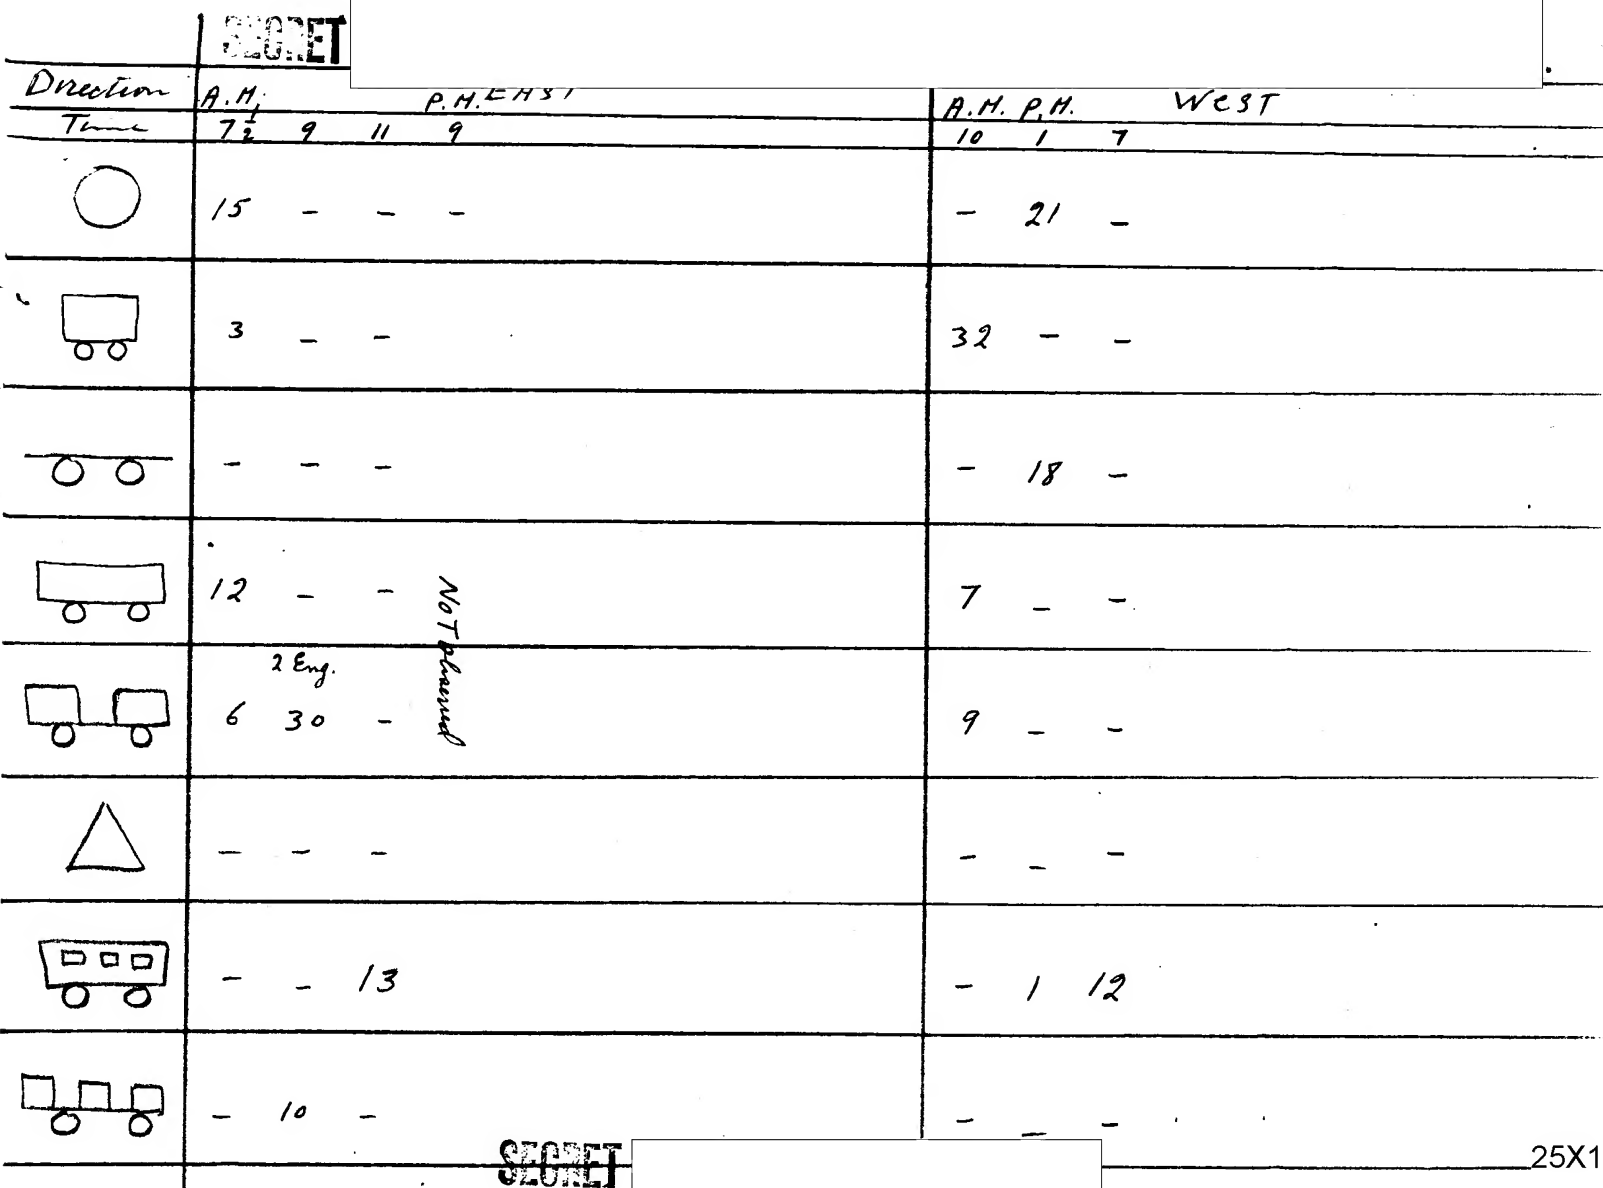 SECRET
Direction A.M. P.M. EAST A.M. P.M. West
Time 7½ 9 11 9 10 1 7
15 - - - - 21 -
3 - - 32 - -
- - - - 18 -
12 - - 7 - -
Not observed
2 Eng.
6 30 - 9 - -
- - - - - -
- - 13 - 1 12
- 10 - - - -
SECRET
25X1